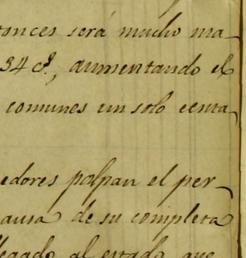 tonces será mucho ma-
34 c.s, aumentando el
comunes un solo centa-
edores palpan el per-
ausa de su completa
llegado al estado que